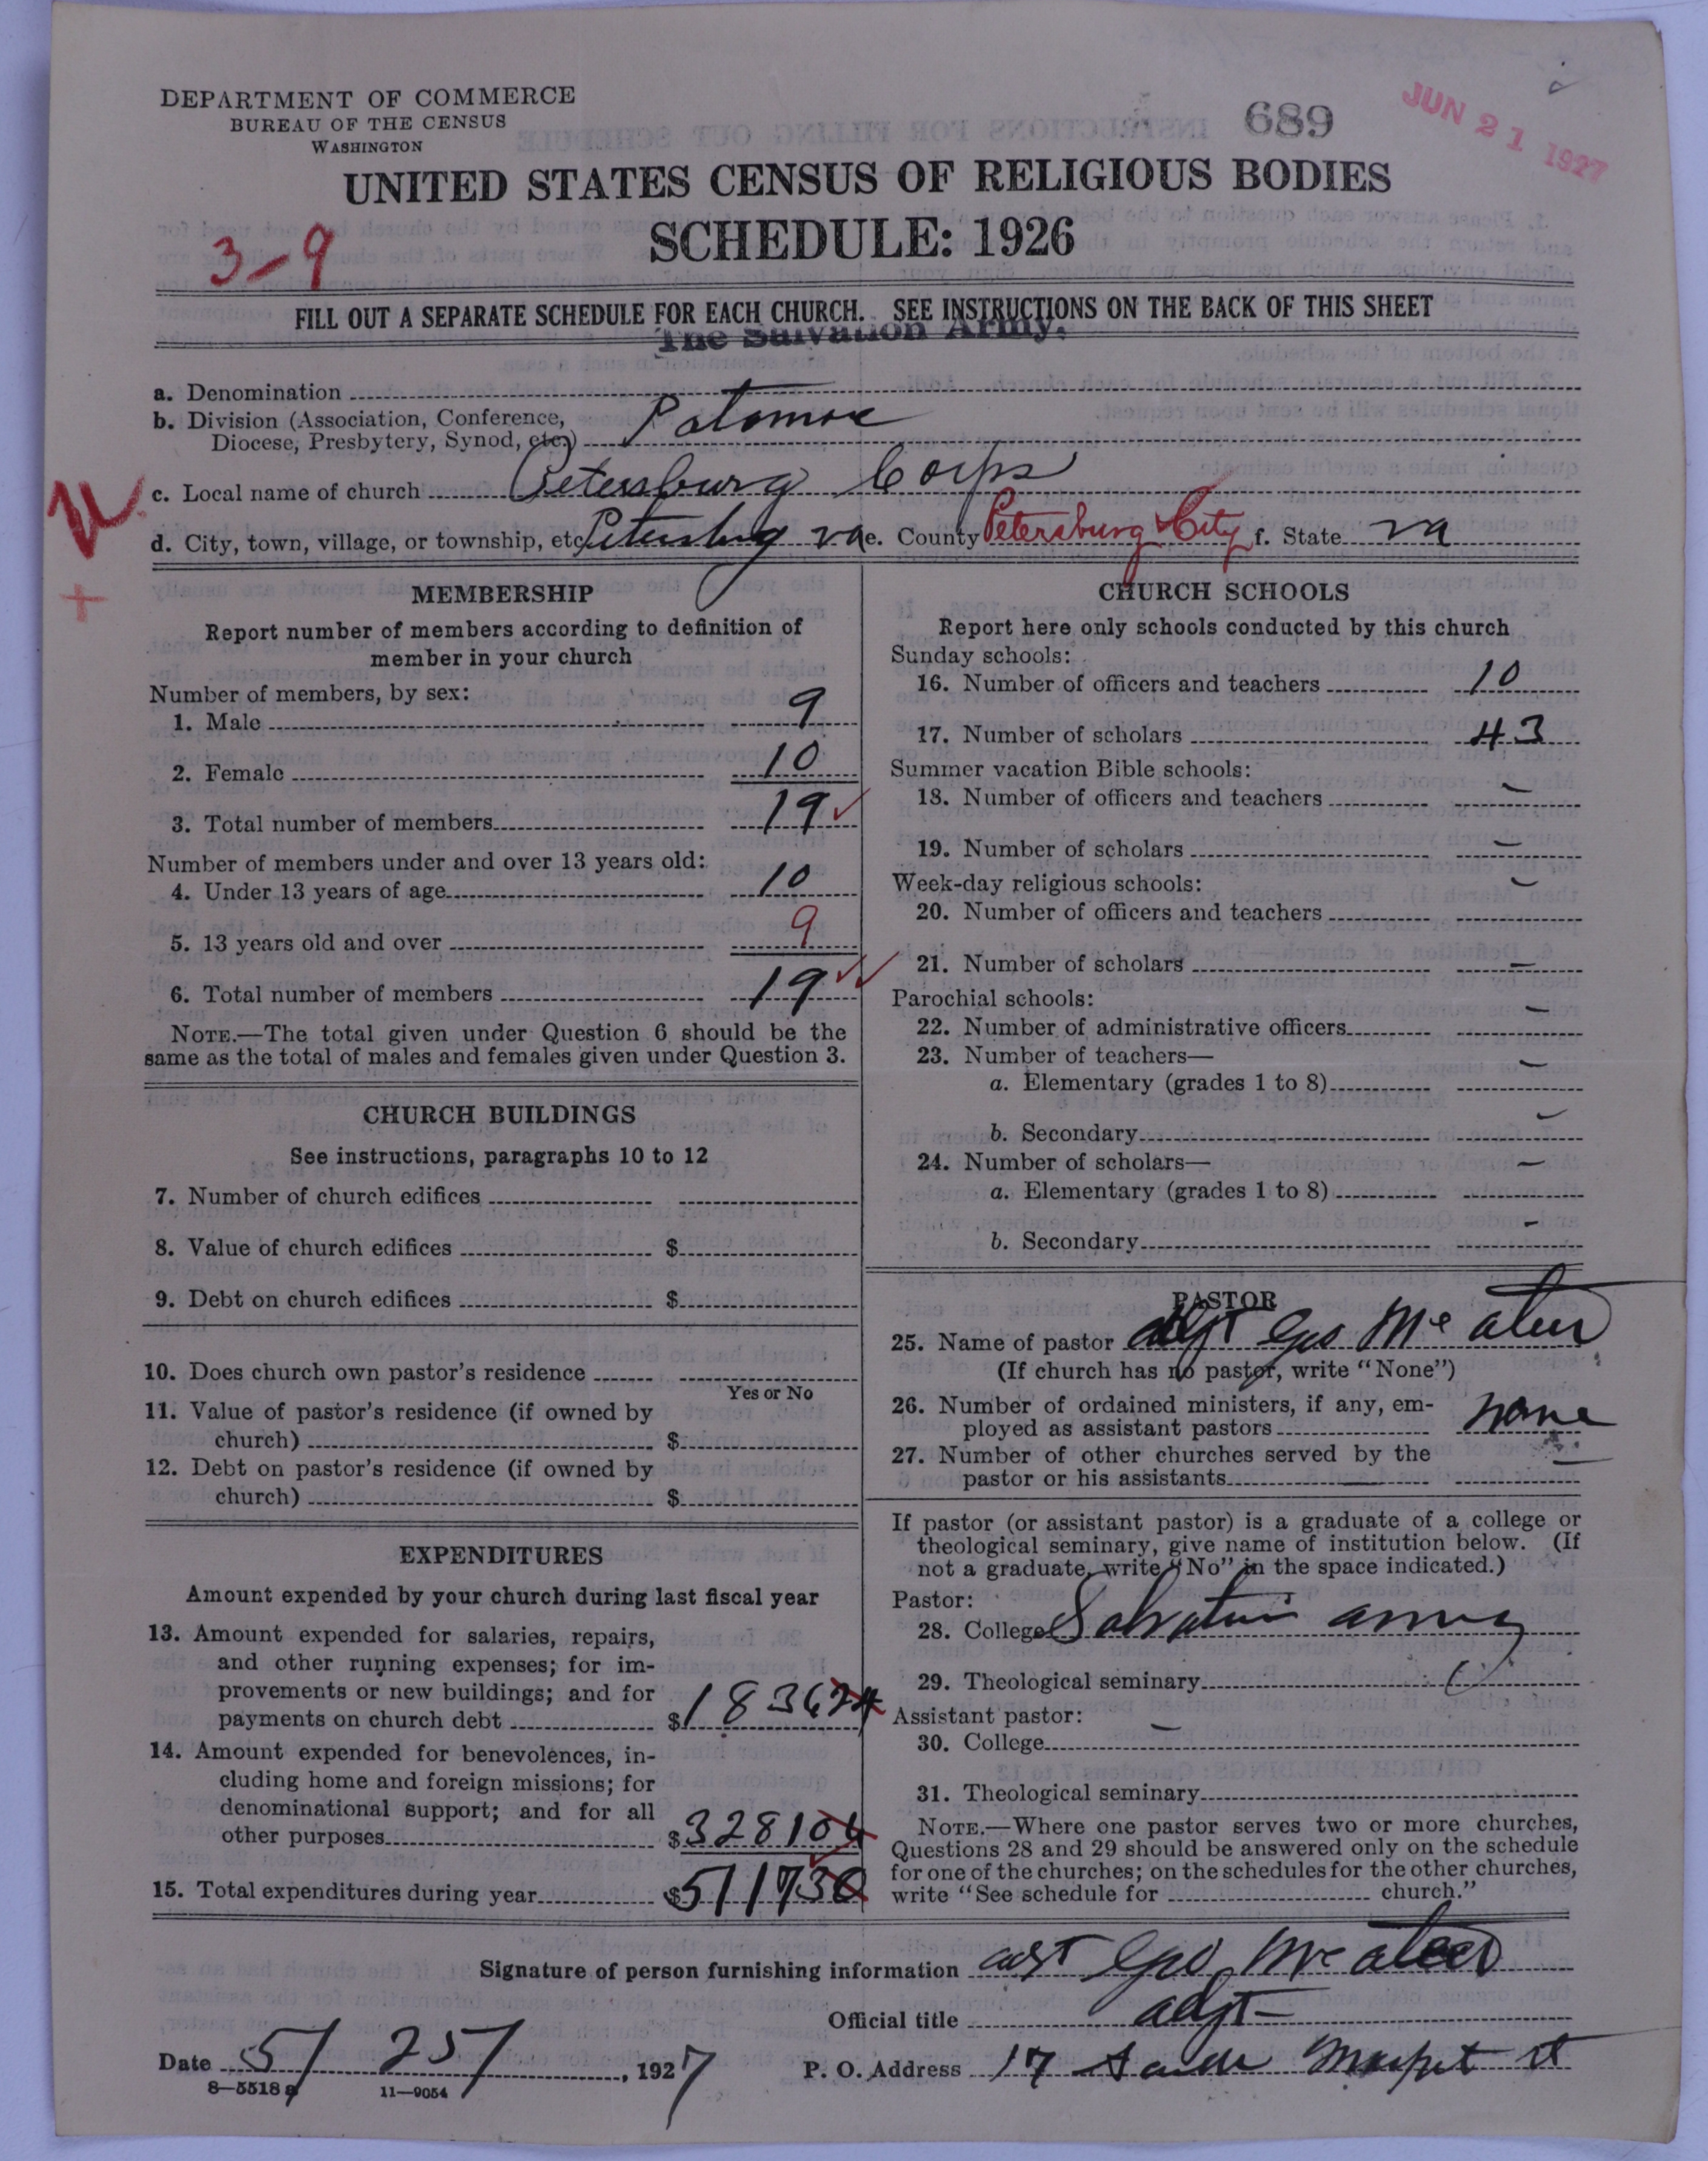 DEPARTMENT OF COMMERCE
BUREAU OF THE CENSUS
WASHINGTON
689
JUN 21 1927
UNITED STATES CENSUS OF RELIGIOUS BODIES
SCHEDULE: 1926
3-9
FILL OUT A SEPARATE SCHEDULE FOR EACH CHURCH. SEE INSTRUCTIONS ON THE BACK OF THIS SHEET
The Salvation Army.
a. Denomination
b. Division (Association, Conference,
Diocese, Presbytery, Synod, etc.) Potomac
c. Local name of church Petersburg Corps
d. City, town, village, or township, etc. Petersburg va e. County Petersburg City f. State va
MEMBERSHIP
Report number of members according to definition of
member in your church
Number of members, by sex:
1. Male 9
2. Female 10
3. Total number of members 19
Number of members under and over 13 years old:
4. Under 13 years of age 10
5. 13 years old and over 9
6. Total number of members 19
NOTE.—The total given under Question 6 should be the
same as the total of males and females given under Question 3.
CHURCH BUILDINGS
See instructions, paragraphs 10 to 12
7. Number of church edifices
8. Value of church edifices $
9. Debt on church edifices $
10. Does church own pastor's residence
Yes or No
11. Value of pastor's residence (if owned by
church) $
12. Debt on pastor's residence (if owned by
church) $
EXPENDITURES
Amount expended by your church during last fiscal year
13. Amount expended for salaries, repairs,
and other running expenses; for im-
provements or new buildings; and for
payments on church debt $183624
14. Amount expended for benevolences, in-
cluding home and foreign missions; for
denominational support; and for all
other purposes $328106
15. Total expenditures during year $511730
CHURCH SCHOOLS
Report here only schools conducted by this church
Sunday schools:
16. Number of officers and teachers 10
17. Number of scholars 43
Summer vacation Bible schools:
18. Number of officers and teachers –
19. Number of scholars –
Week-day religious schools: –
20. Number of officers and teachers
21. Number of scholars –
Parochial schools: –
22. Number of administrative officers
23. Number of teachers— –
a. Elementary (grades 1 to 8)
b. Secondary –
24. Number of scholars— –
a. Elementary (grades 1 to 8)
b. Secondary –
PASTOR
25. Name of pastor adjt Geo Mc ateer
(If church has no pastor, write "None")
26. Number of ordained ministers, if any, em-
ployed as assistant pastors none
27. Number of other churches served by the
pastor or his assistants –
If pastor (or assistant pastor) is a graduate of a college or
theological seminary, give name of institution below. (If
not a graduate, write "No" in the space indicated.)
Pastor:
28. College Salvation army
29. Theological seminary
Assistant pastor: –
30. College
31. Theological seminary
NOTE.—Where one pastor serves two or more churches,
Questions 28 and 29 should be answered only on the schedule
for one of the churches; on the schedules for the other churches,
write "See schedule for church."
Signature of person furnishing information Geo Mc ateer
Official title adjt
Date 5/ 25/, 1927 P. O. Address 17 st
8—5518 a 11—9054